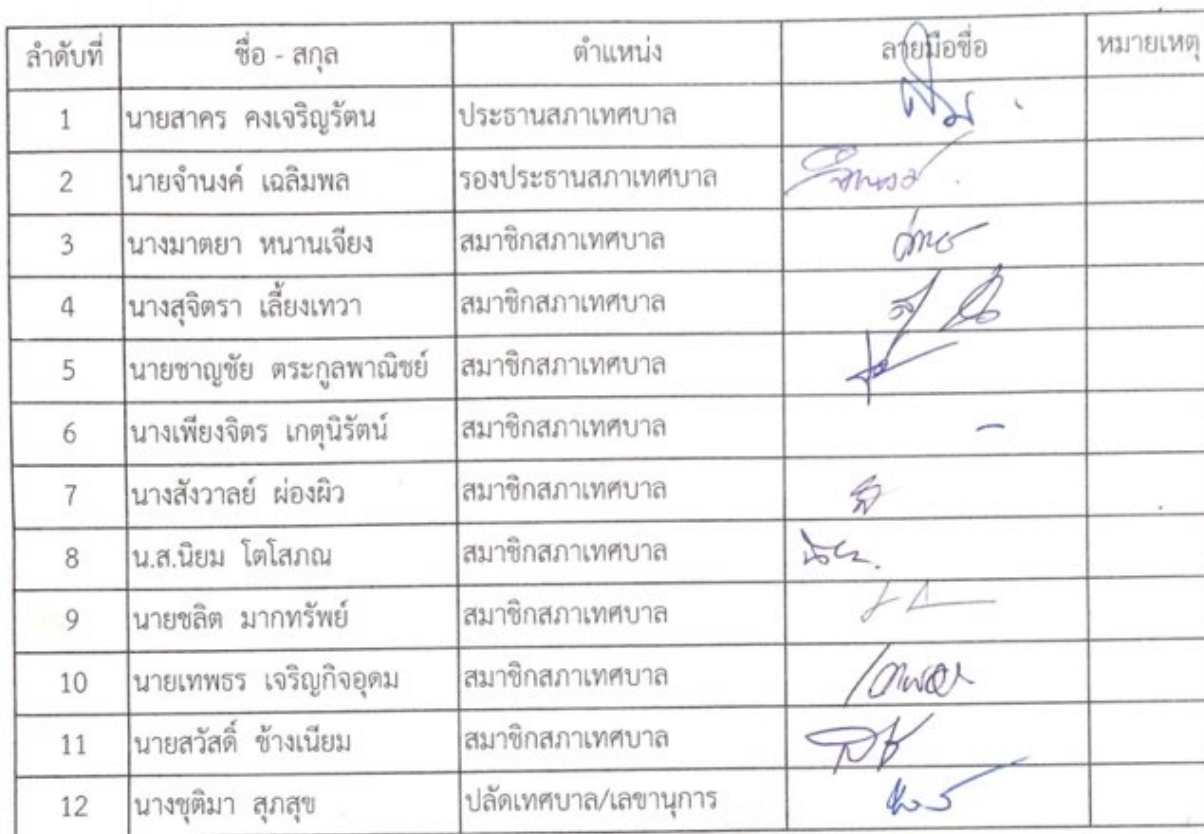 ลำดับที่ ชื่อ - สกุล ตำแหน่ง ลายมือชื่อ หมายเหตุ
1 นายสาคร คงเจริญรัตน ประธานสภาเทศบาล
2 นายจำนงค์ เฉลิมพล รองประธานสภาเทศบาล
3 นางมาตยา หนานเจียง สมาชิกสภาเทศบาล
4 นางสุจิตรา เลี้ยงเทวา สมาชิกสภาเทศบาล
5 นายชาญชัย ตระกูลพาณิชย์ สมาชิกสภาเทศบาล
6 นางเพียงจิตร เกตุนิรัตน์ สมาชิกสภาเทศบาล -
7 นางสังวาลย์ ผ่องผิว สมาชิกสภาเทศบาล
8 น.ส.นิยม โตโสภณ สมาชิกสภาเทศบาล
9 นายชลิต มากทรัพย์ สมาชิกสภาเทศบาล
10 นายเทพธร เจริญกิจอุดม สมาชิกสภาเทศบาล
11 นายสวัสดิ์ ช้างเนียม สมาชิกสภาเทศบาล
12 นางชุติมา สุภสุข ปลัดเทศบาล/เลขานุการ